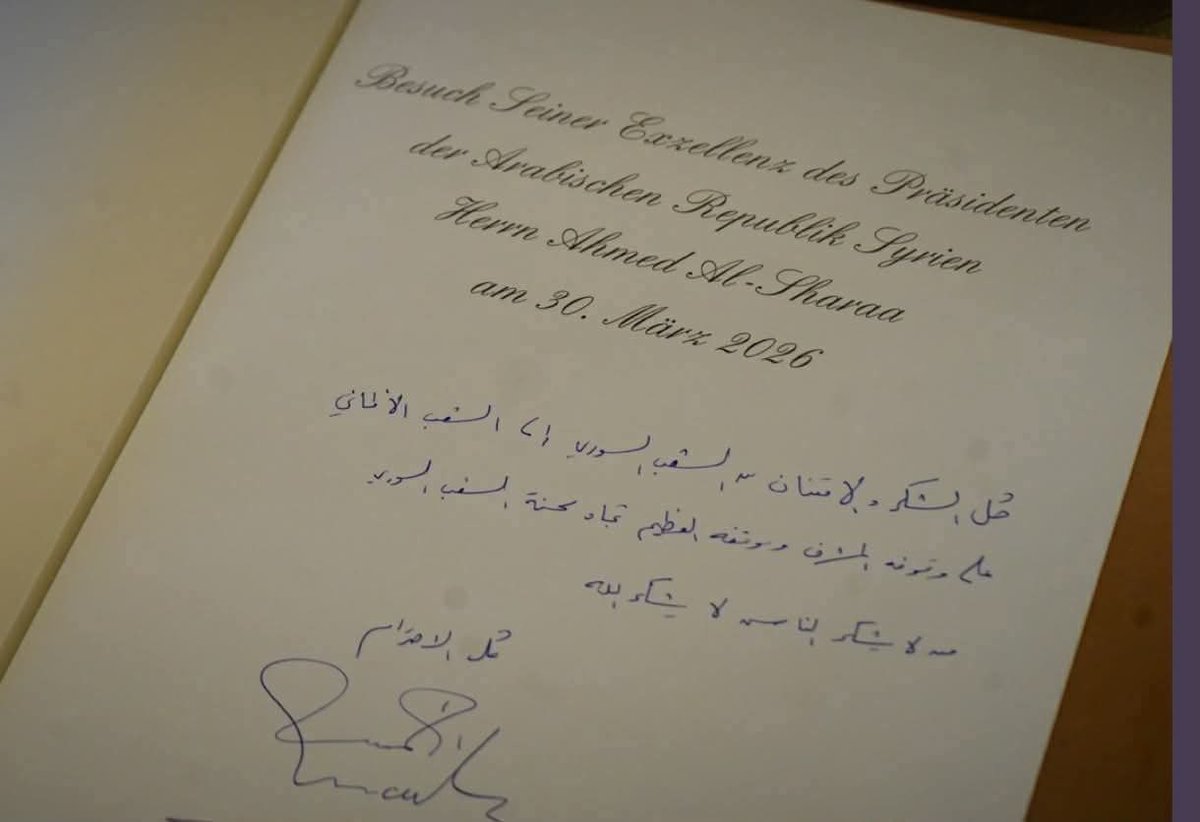 Besuch Seiner Exzellenz des Präsidenten
der Arabischen Republik Syrien
Herrn Ahmed Al-Sharaa
am 30. März 2026
كل الشكر والامتنان من الشعب السوري إلى الشعب الألماني
على وقوفه المشرف وموقفه العظيم تجاه محنة الشعب السوري
من لا يشكر الناس لا يشكر الله
كل الاحترام